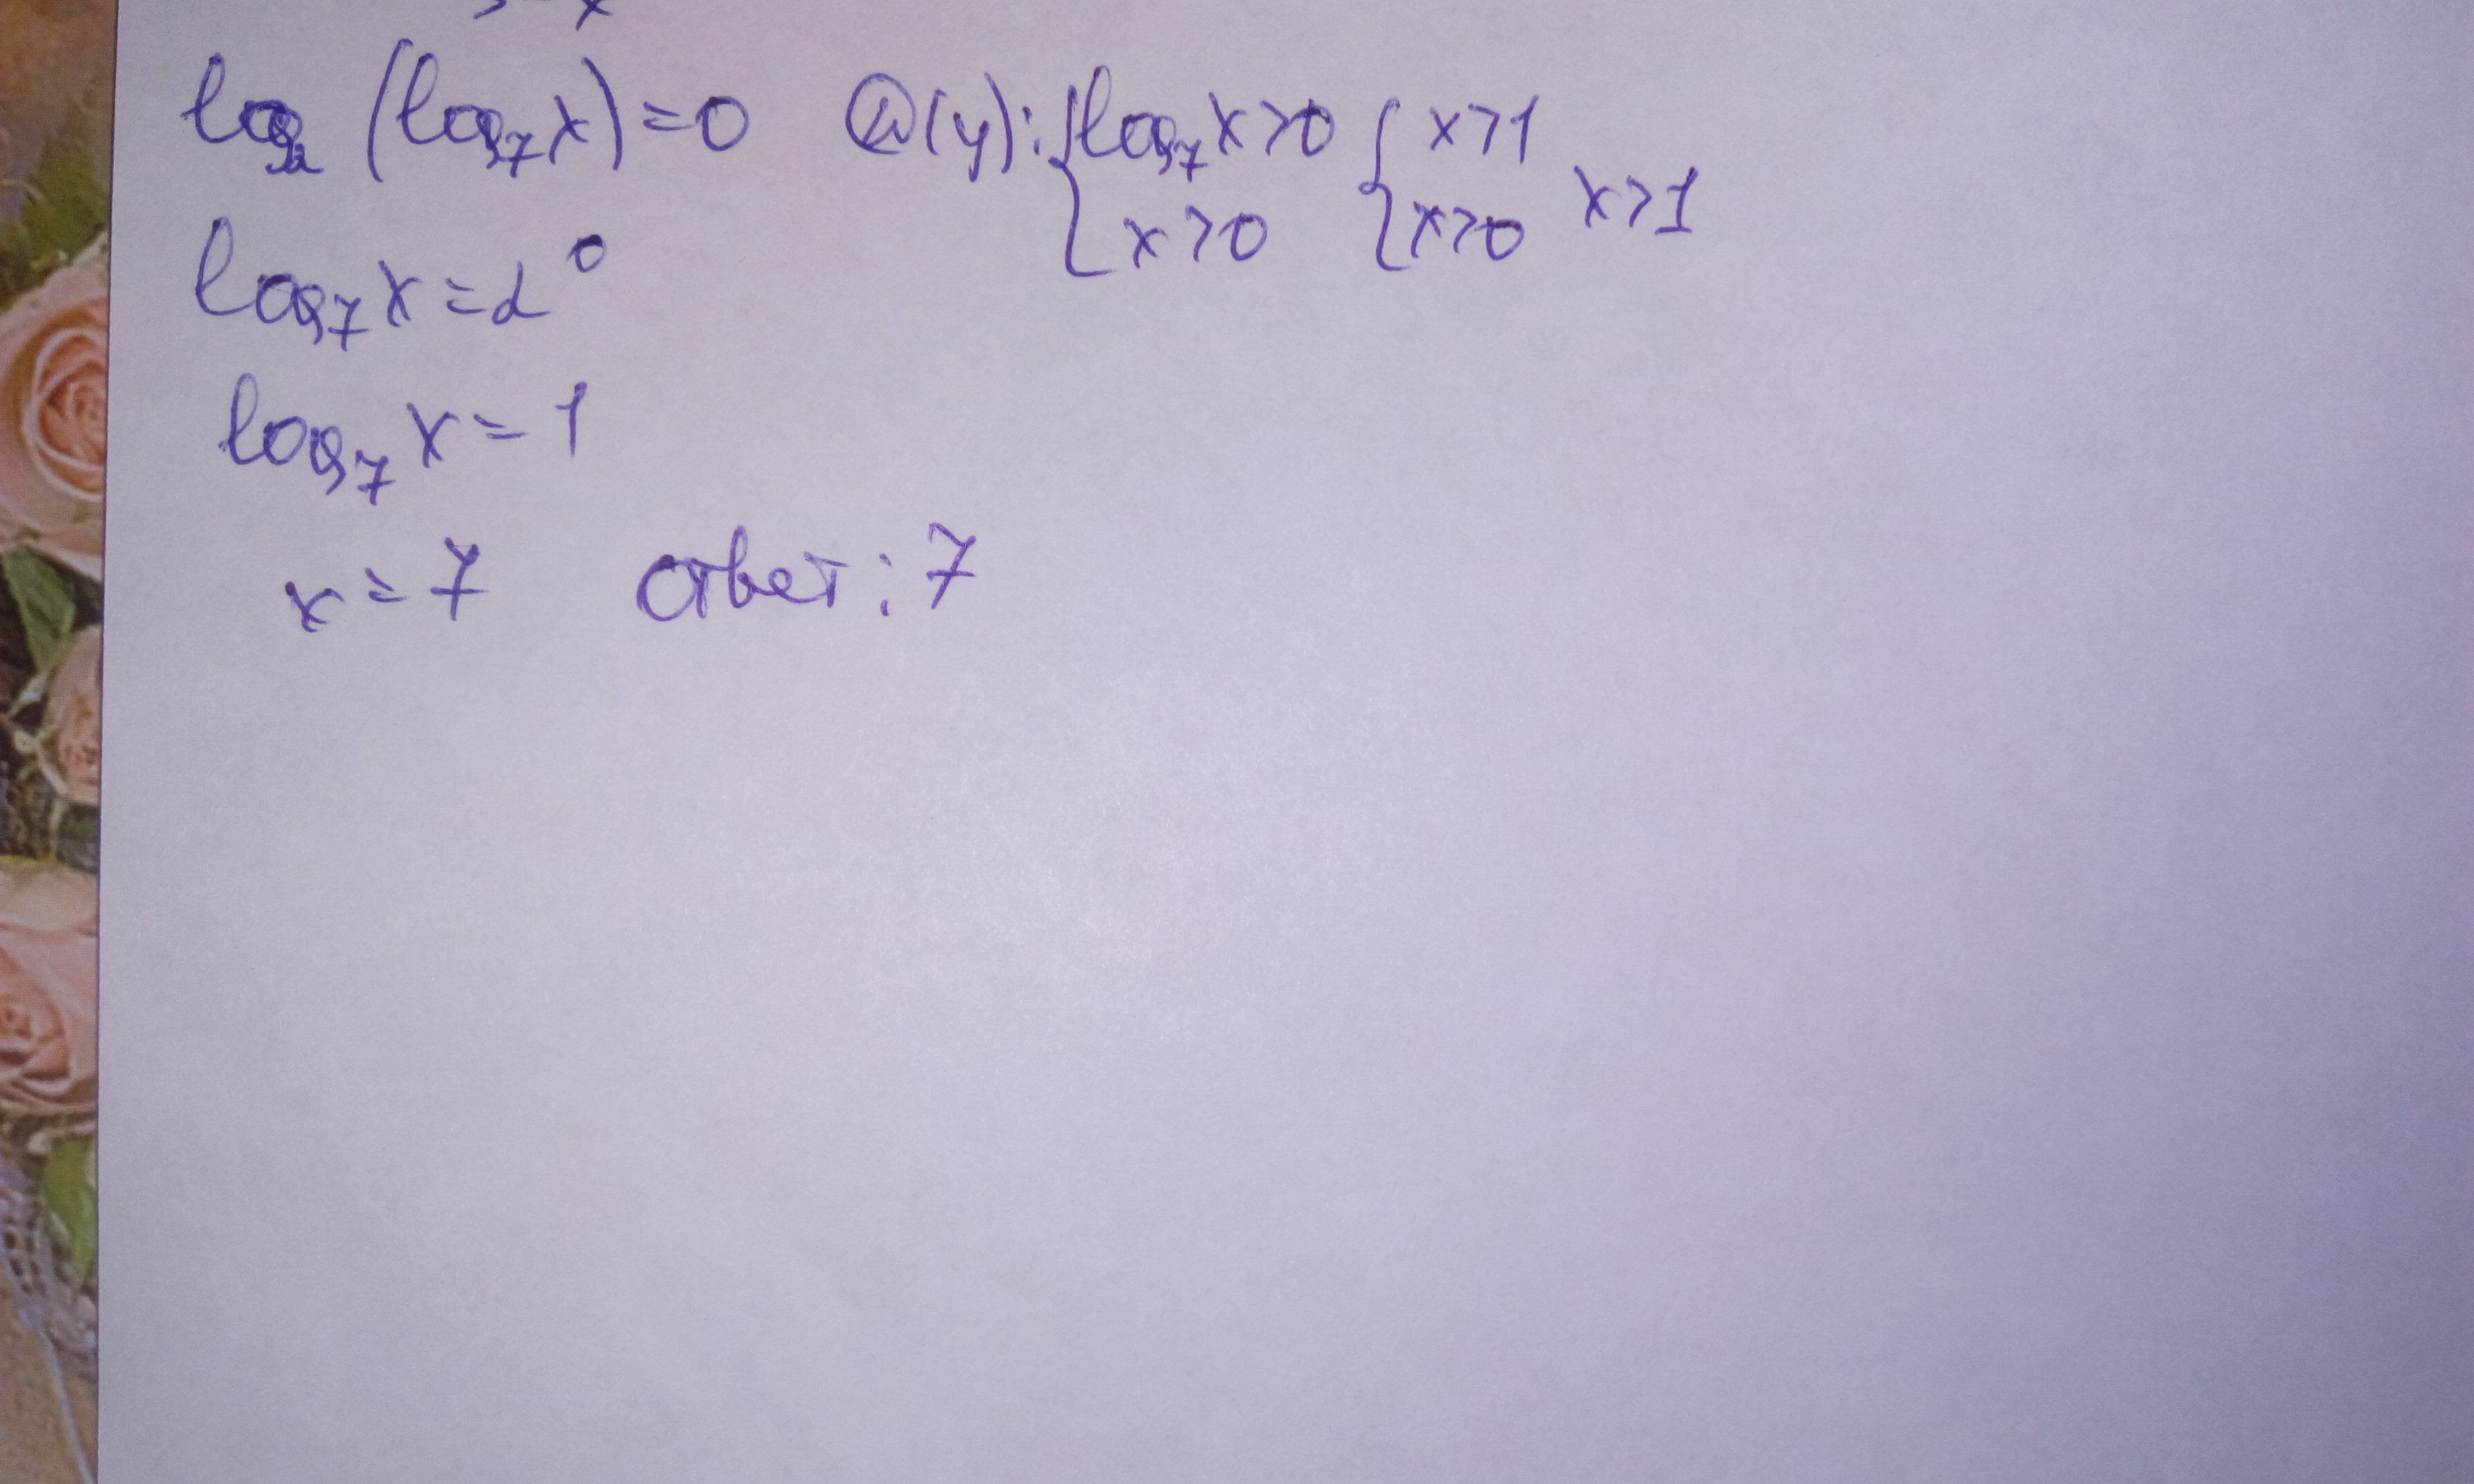 log₂ (log₇x)=0 D(y): { log₇x>0 { x>1
x>0 x>0 x>1
log₇x=2⁰
log₇x=1
x=7 ответ: 7